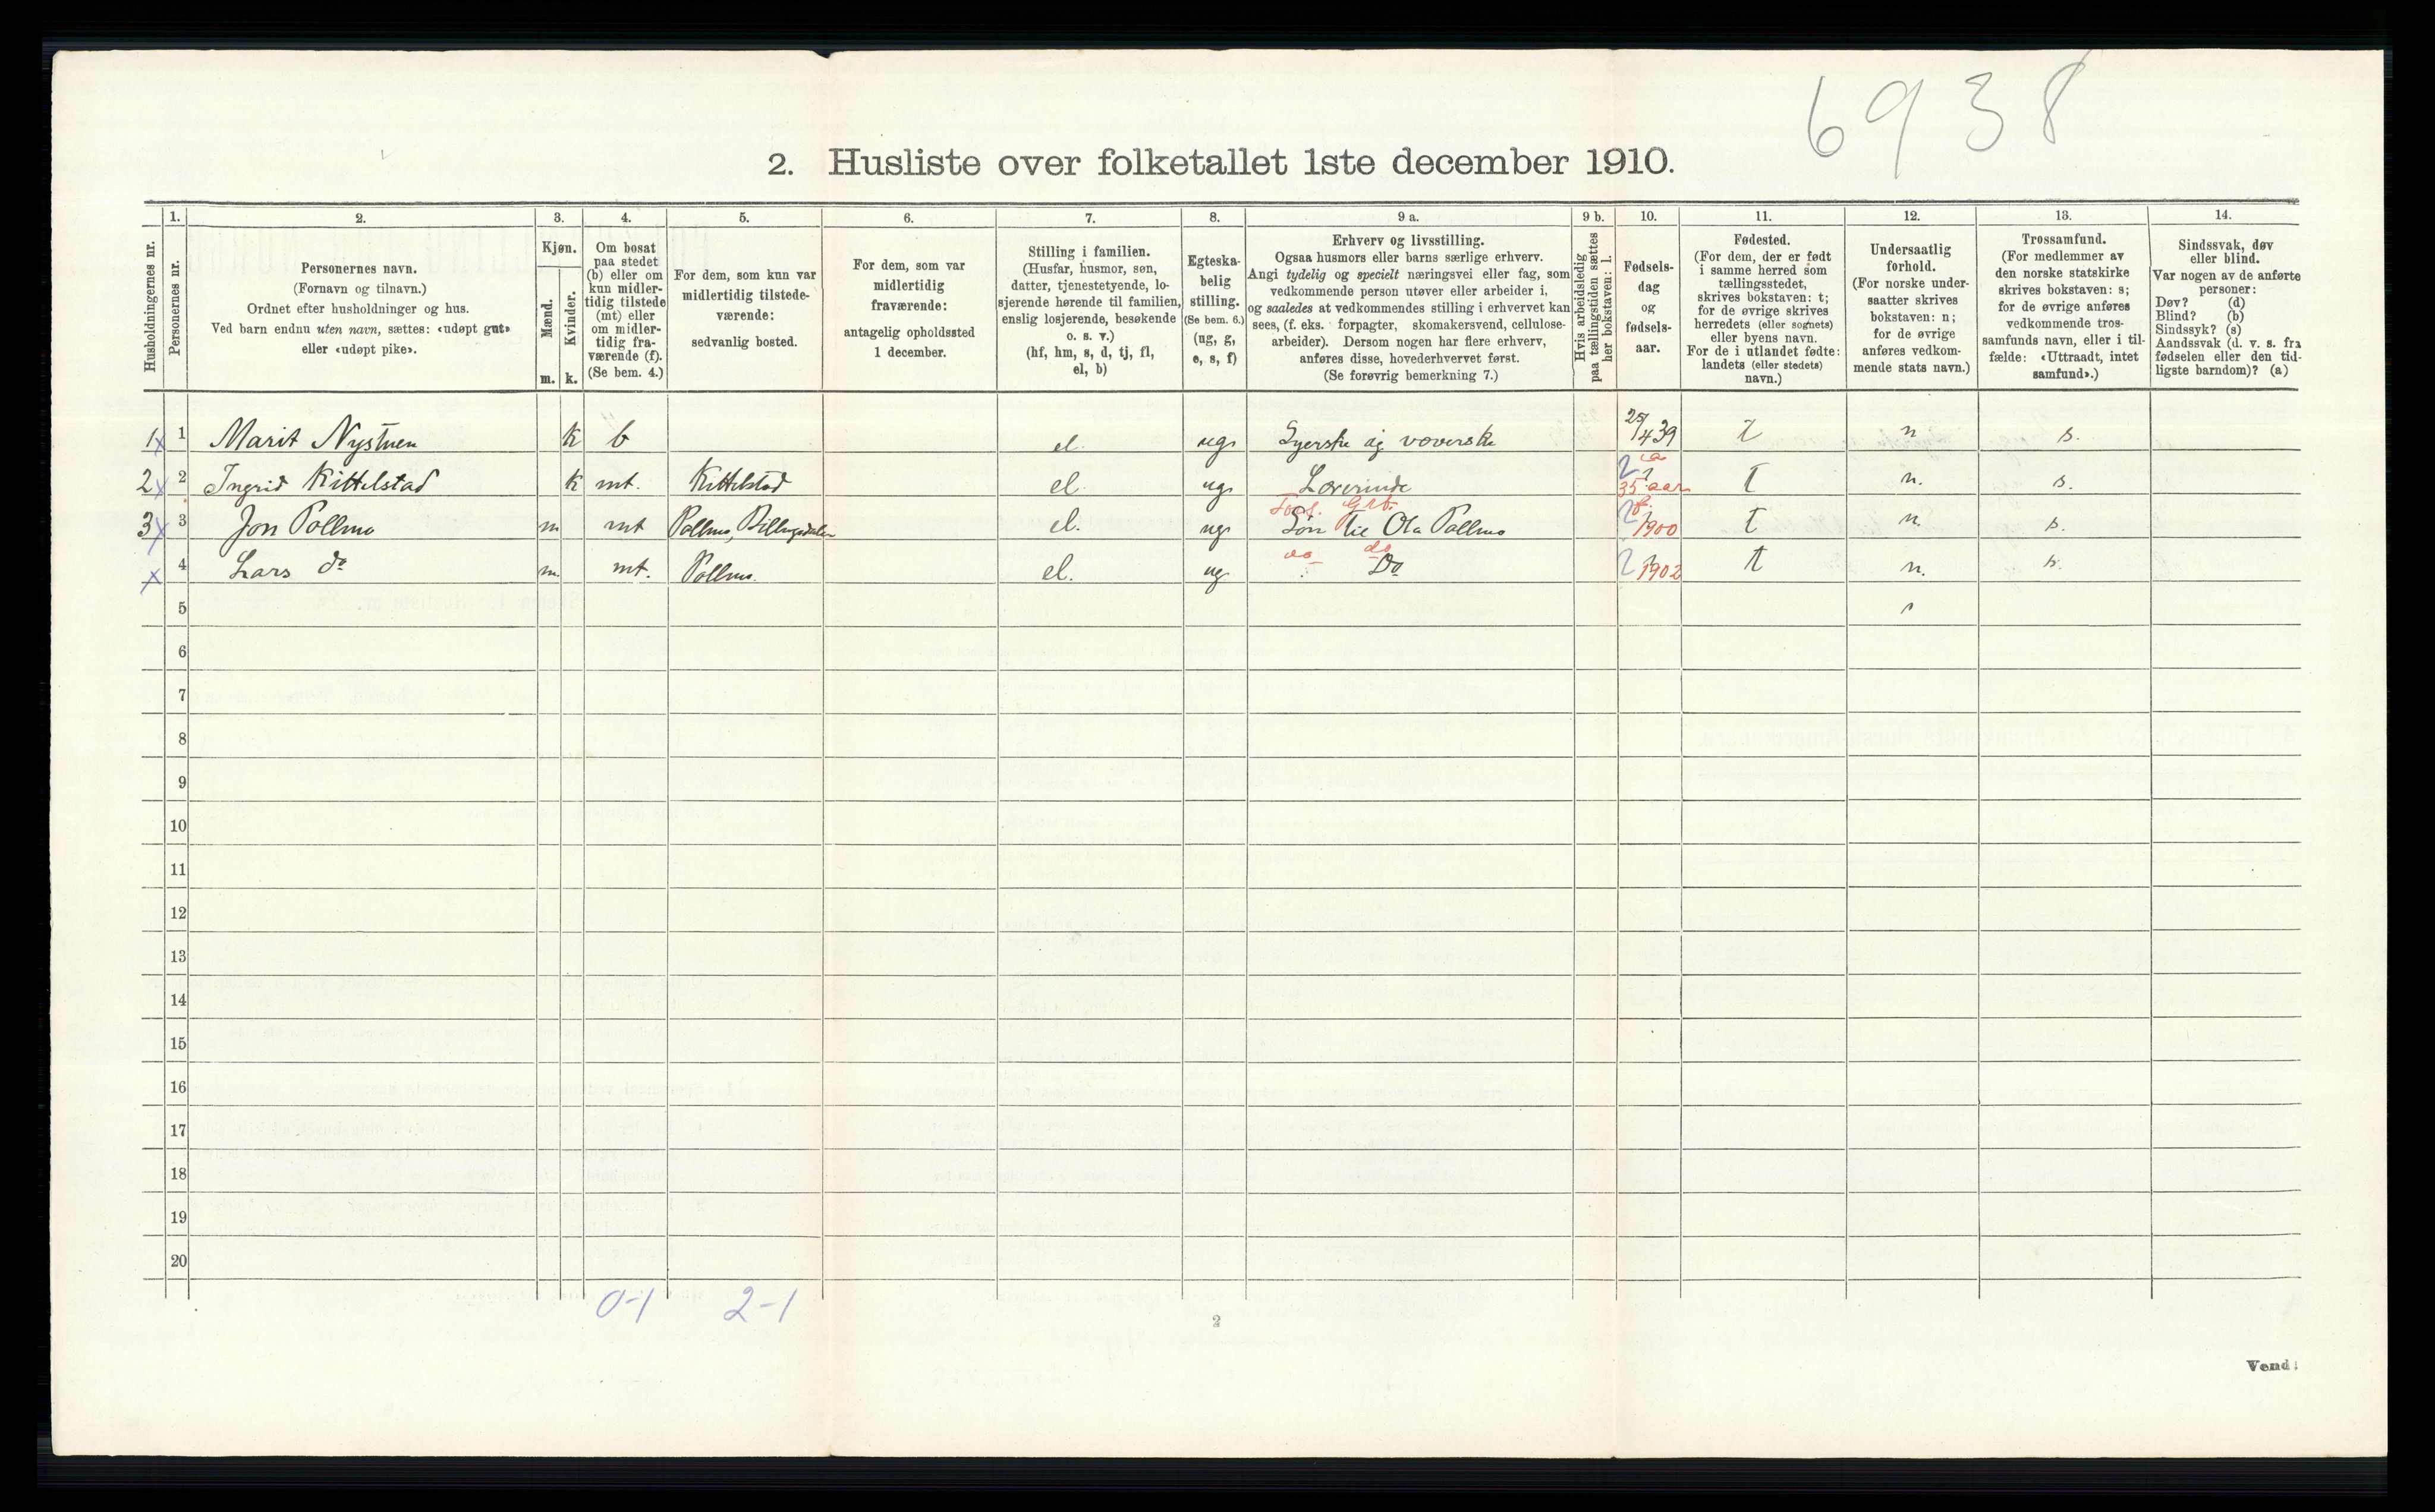 6938
2. Husliste over folketallet 1ste december 1910.
Husholdningernes nr.
1.
Personernes nr.
2.
Personernes navn.
(Fornavn og tilnavn.)
Ordnet efter husholdninger og hus.
Ved barn endnu uten navn, sættes: «udøpt gut»
eller «udøpt pike».
3.
Kjøn.
Mænd.
m.
Kvinder.
k.
4.
Om bosat
paa stedet
(b) eller om
kun midler-
tidig tilstede
(mt) eller
om midler-
tidig fra-
værende (f).
(Se bem. 4.)
5.
For dem, som kun var
midlertidig tilstede-
værende:
sedvanlig bosted.
6.
For dem, som var
midlertidig
fraværende:
antagelig opholdssted
1 december.
7.
Stilling i familien.
(Husfar, husmor, søn,
datter, tjenestetyende, lo-
sjerende hørende til familien,
enslig losjerende, besøkende
o. s. v.)
(hf, hm, s, d, tj, fl,
el, b)
8.
Egteska-
belig
stilling.
(Se bem. 6.)
(ug, g,
e, s, f)
9 a.
Erhverv og livsstilling.
Ogsaa husmors eller barns særlige erhverv.
Angi tydelig og specielt næringsvei eller fag, som
vedkommende person utøver eller arbeider i,
og saaledes at vedkommendes stilling i erhvervet kan
sees, (f. eks. forpagter, skomakersvend, cellulose-
arbeider). Dersom nogen har flere erhverv,
anføres disse, hovederhvervet først.
(Se forøvrig bemerkning 7.)
9 b.
Hvis arbeidsledig
paa tællingstiden sættes
her bokstaven: l.
10.
Fødsels-
dag
og
fødsels-
aar.
11.
Fødested.
(For dem, der er født
i samme herred som
tællingsstedet,
skrives bokstaven: t;
for de øvrige skrives
herredets (eller sognets)
eller byens navn.
For de i utlandet fødte:
landets (eller stedets)
navn.)
12.
Undersaatlig
forhold.
(For norske under-
saatter skrives
bokstaven: n;
for de øvrige
anføres vedkom-
mende stats navn.)
13.
Trossamfund.
(For medlemmer av
den norske statskirke
skrives bokstaven: s;
for de øvrige anføres
vedkommende tros-
samfunds navn, eller i til-
fælde: «Uttraadt, intet
samfund».)
14.
Sindssvak, døv
eller blind.
Var nogen av de anførte
personer:
Døv? (d)
Blind? (b)
Sindssyk? (s)
Aandssvak (d. v. s. fra
fødselen eller den tid-
ligste barndom)? (a)
1x 1 Marit Nystuen k b el. ug. Syerske og væverske 25/4 39 t n s.
2x 2 Ingrid Kittelstad k mt. Kittelstad el. ug. Lærerinde ca 35 aar t n. s.
Fors. f.
3x 3 Jon Pollmo m mt Pollmo, el. ug. Søn til Ola Pollmo 1900 t n. s.
do do
x 4 Lars do m. mt. Pollmo. el. ug Do 1902 t n. s.
5
6
7
8
9
10
11
12
13
14
15
16
17
18
19
20
0-1 2-1
2
Vend!